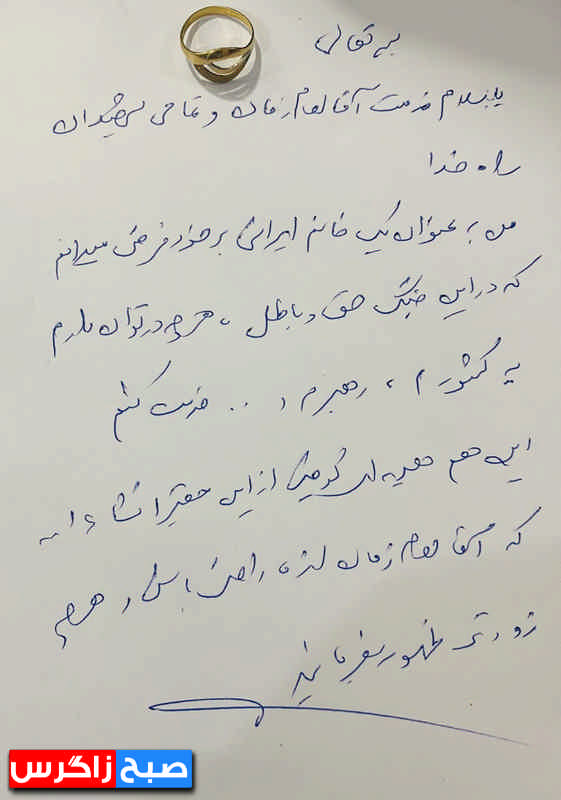 بسمه تعالی
با سلام خدمت آقا امام زمان و تمامی شهیدان
راه خدا
من به عنوان یک خانم ایرانی بر خود فرض میدانم
که در این جنگ حق و باطل ، هر چه در توان دارم
به کشورم ، رهبرم و .. خدمت کنم
این هم هدیه ای کوچک از این حقیر انشاءا...
که آقا امام زمان از ما راضی باشن و هر چه
زودتر ظهور بفرمایند
صبح زاگرس